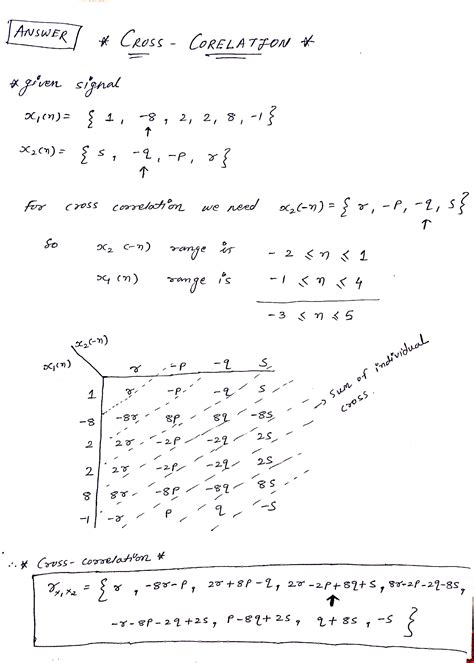 ANSWER * CROSS - CORELATION *
* given signal
x₁(n) = { 1, -8, 2, 2, 8, -1 }
↑
x₂(n) = { s, -q, -p, r }
↑
For cross correlation we need x₂(-n) = { r, -p, -q, s }
↑
So x₂(-n) range is -2 ≤ n ≤ 1
x₁(n) range is -1 ≤ n ≤ 4
-3 ≤ n ≤ 5
x₂(-n)
x₁(n) r -p -q s
1 r -p -q s
-8 -8r 8p 8q -8s
2 2r -2p -2q 2s
2 2r -2p -2q 2s
8 8r -8p -8q 8s
-1 -r p q -s
→ sum of individual
cross.
∴ * Cross-correlation *
r x₁x₂ = { r, -8r-p, 2r+8p-q, 2r-2p+8q+s, 8r-2p-2q-8s,
↑
-r-8p-2q+2s, p-8q+2s, q+8s, -s }